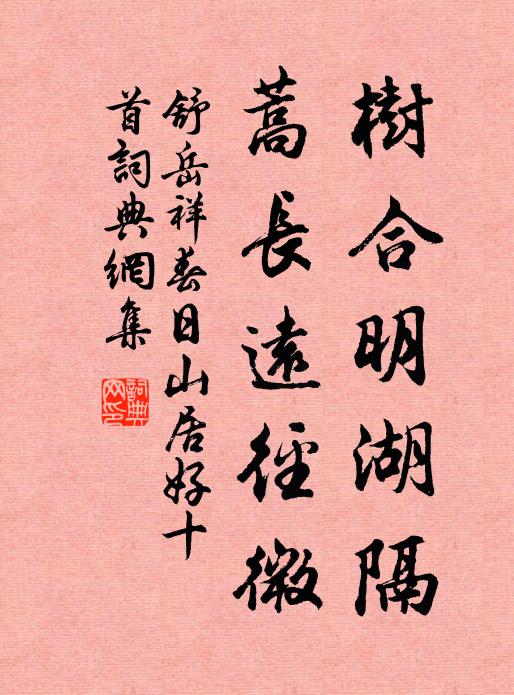 樹合明湖隔
蒿長遠徑微
舒岳祥春日山居好十
首詞典網集
詞典
网印